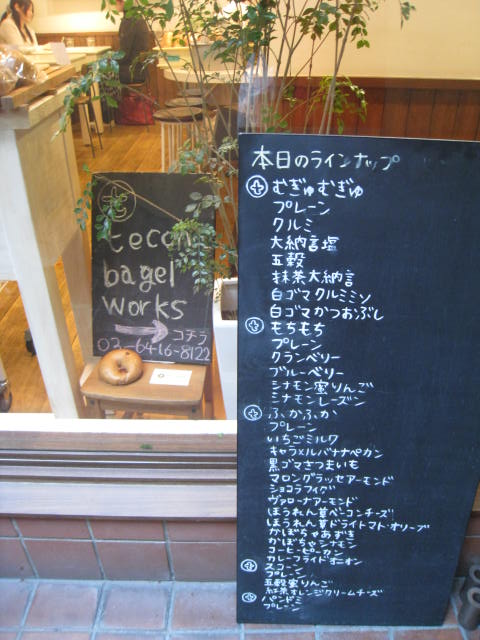 tecona
bagel
works
コチラ
03-6416-8122
本日のラインナップ
むぎゅむぎゅ
プレーン
クルミ
大納言塩
五穀
抹茶大納言
白ゴマクルミミソ
白ゴマかつおぶし
もちもち
プレーン
クランベリー
ブルーベリー
シナモン蜜りんご
シナモンレーズン
ふかふか
プレーン
いちごミルク
キャラメルバナナペカン
黒ゴマさつまいも
マロングラッセアーモンド
ショコラフィグ
ヴァローナアーモンド
ほうれん草ベーコンチーズ
ほうれん草ドライトマト・オリーブ
かぼちゃあずき
かぼちゃシナモン
コーヒーピーカン
カレーフライドオニオン
スコーン
プレーン
五穀蜜りんご
紅茶オレンジクリームチーズ
パンドミ
プレーン